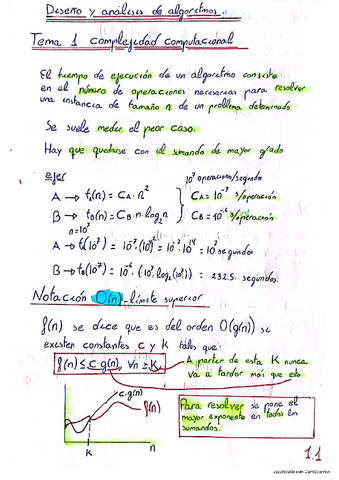 Diseño y análisis de algoritmos.
Tema 1 complejidad computacional
El tiempo de ejecución de un algoritmo consiste
en el número de operaciones necesarias para resolver
una instancia de tamaño n de un problema determinado
Se suele medir el peor caso.
Hay que quedarse con el sumando de mayor grado
ejer
10⁷ operaciones/segundo
A → t_A(n) = C_A · n²    C_A = 10⁻⁷ s/operación
B → t_B(n) = C_B · n · log₂ n    C_B = 10⁻⁶ s/operación
n=10⁷
A → t_A(10⁷) = 10⁻⁷ · (10⁷)² = 10⁻⁷ · 10¹⁴ = 10⁷ segundos
B → t_B(10⁷) = 10⁻⁶ · (10⁷ · log₂(10⁷)) = 232.5 segundos.
Notación O(n) - límite superior
f(n) se dice que es del orden O(g(n)) se
existen constantes c y k tales que:
f(n) ≤ c g(n), ∀n ≥ k
A partir de esta K nunca
va a tardar más que esto
c·g(n)
f(n)
K
n
Para resolver se pone el
mayor exponente en todos los
sumandos.
1.1
Escaneado con CamScanner